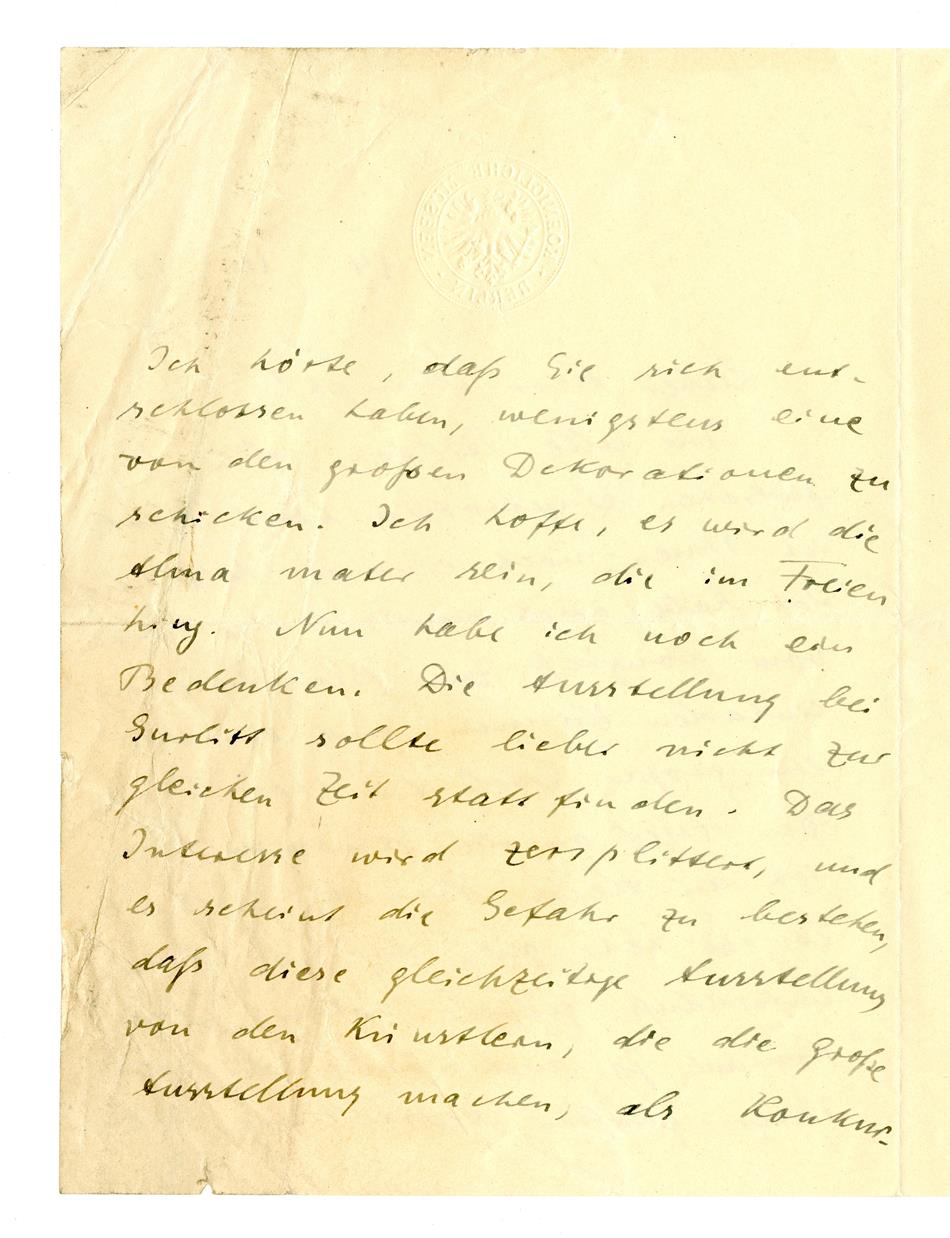 KOENIGLICHE MUSEEN
BERLIN
Ich hörte, daß Sie sich ent-
schlossen haben, wenigstens eine
von den großen Dekorationen zu
schicken. Ich hoffe, es wird die
Alma mater sein, die im Freien
hing. Nun habe ich noch ein
Bedenken. Die Ausstellung bei
Gurlitt sollte lieber nicht zur
gleichen Zeit stattfinden. Das
Interesse wird zersplittert, und
es scheint die Gefahr zu bestehen,
daß diese gleichzeitige Ausstellung
von den Künstlern, die die große
Ausstellung machen, als Konkur-